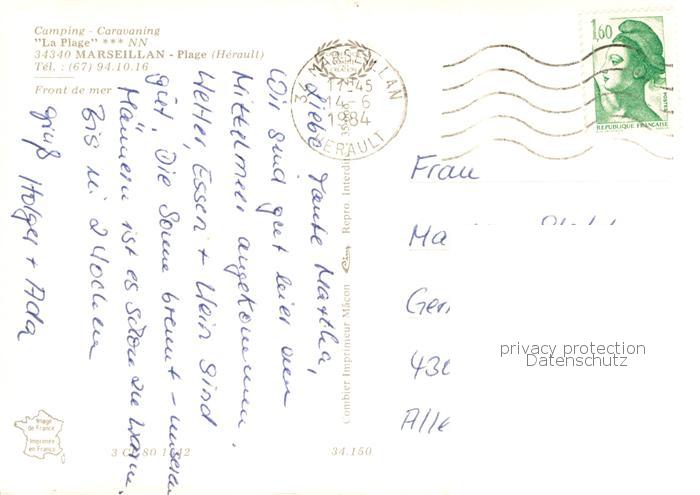 Camping - Caravaning
"La Plage" *** NN
34340 MARSEILLAN - Plage (Hérault)
Tél. : (67) 94.10.16
Front de mer
34 MARSEILLAN
17H45
14-6
1984
HERAULT
1,60
POSTES
REPUBLIQUE FRANÇAISE
Liebe Tante Martha,
Wir sind gut hier am
Mittelmeer angekommen.
Wetter, Essen + Wein sind
gut. Die Sonne brennt - unseren
Männern ist es schon zu warm.
Bis in 2 Wochen
Gruß Holger + Ada
Combier Imprimeur Mâcon
Repro. Interdite
Frau
Ma
Ger
438
Alle
privacy protection
Datenschutz
Image
de France
Imprimée
en France
34.150